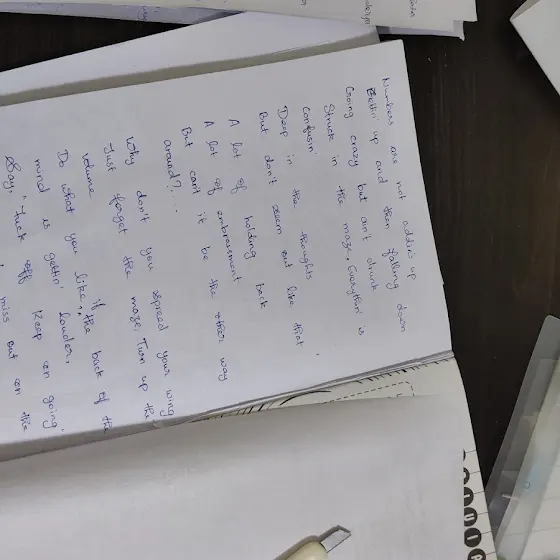 Numbers are not addin's up
Gettin' up and then falling down
Going crazy but ain't drunk
Struck in the maze, Everythin' is
confusin'
Deep in the thoughts
But don't seem out like that,
A lot of holding back
A lot of embrassment
But can't it be the other way
around?....
Why don't you spread your wing
Just forget the maze, Turn up the
volume
Do what you like, if the back of the
mind is gettin' louder,
Say, "Fuck off Keep on going,
miss out on the